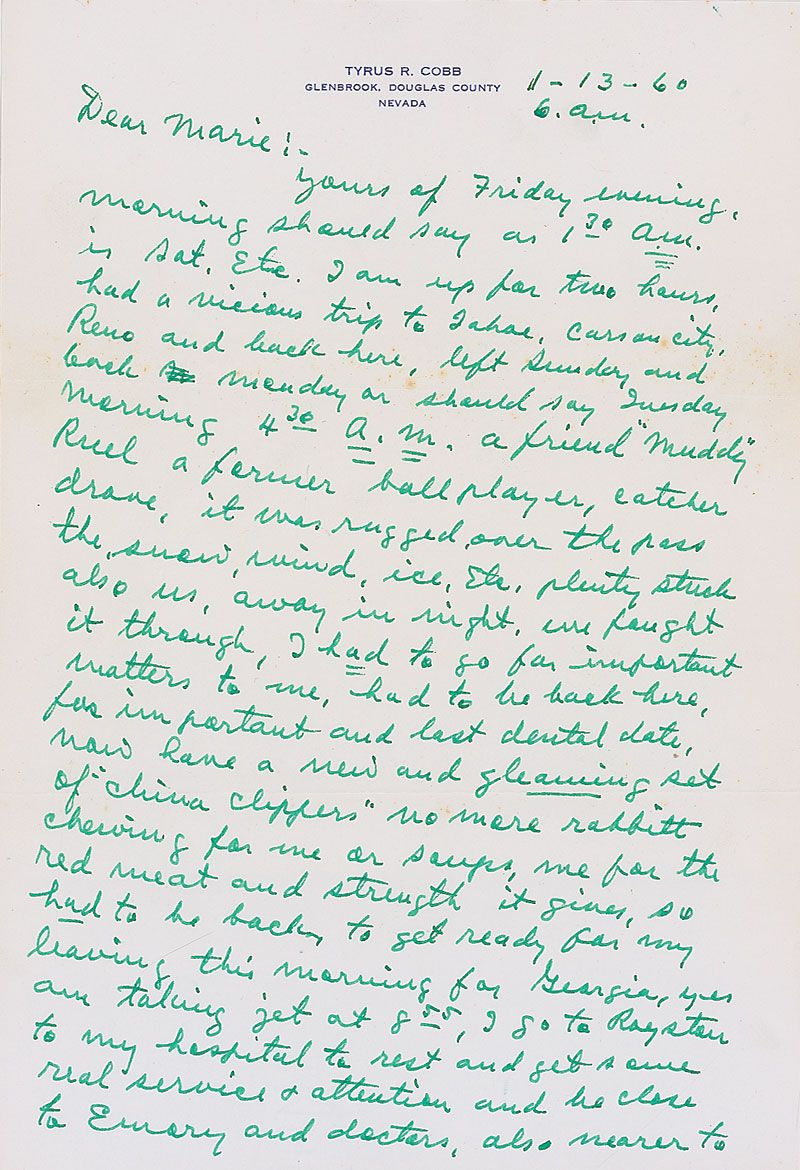 TYRUS R. COBB
GLENBROOK, DOUGLAS COUNTY
NEVADA
1-13-60
6. a.m.
Dear Marie:-
yours of Friday evening,
morning should say as 1 30 A.M.
is Sat. Etc. I am up for two hours,
had a vicious trip to Tahoe, Carson city,
Reno and back here, left Sunday and
back monday or should say Tuesday
morning 4 30 A.M. a friend "Muddy"
Ruel a former ball player, catcher
drove, it was rugged, over the pass
the, snow, wind, ice, Etc, plenty stuck
also us, away in night, we fought
it through, I had to go for important
matters to me, had to be back here,
for important and last dental date,
now have a new and gleaming set
of "china clippers" no more rabbitt
chewing for me or soups, me for the
red meat and strength it gives, so
had to be back, to get ready for my
leaving this morning for Georgia, yes
am taking jet at 8 55, I go to Royston
to my hospital to rest and get some
real service & attention and be close
to Emory and doctors, also nearer to